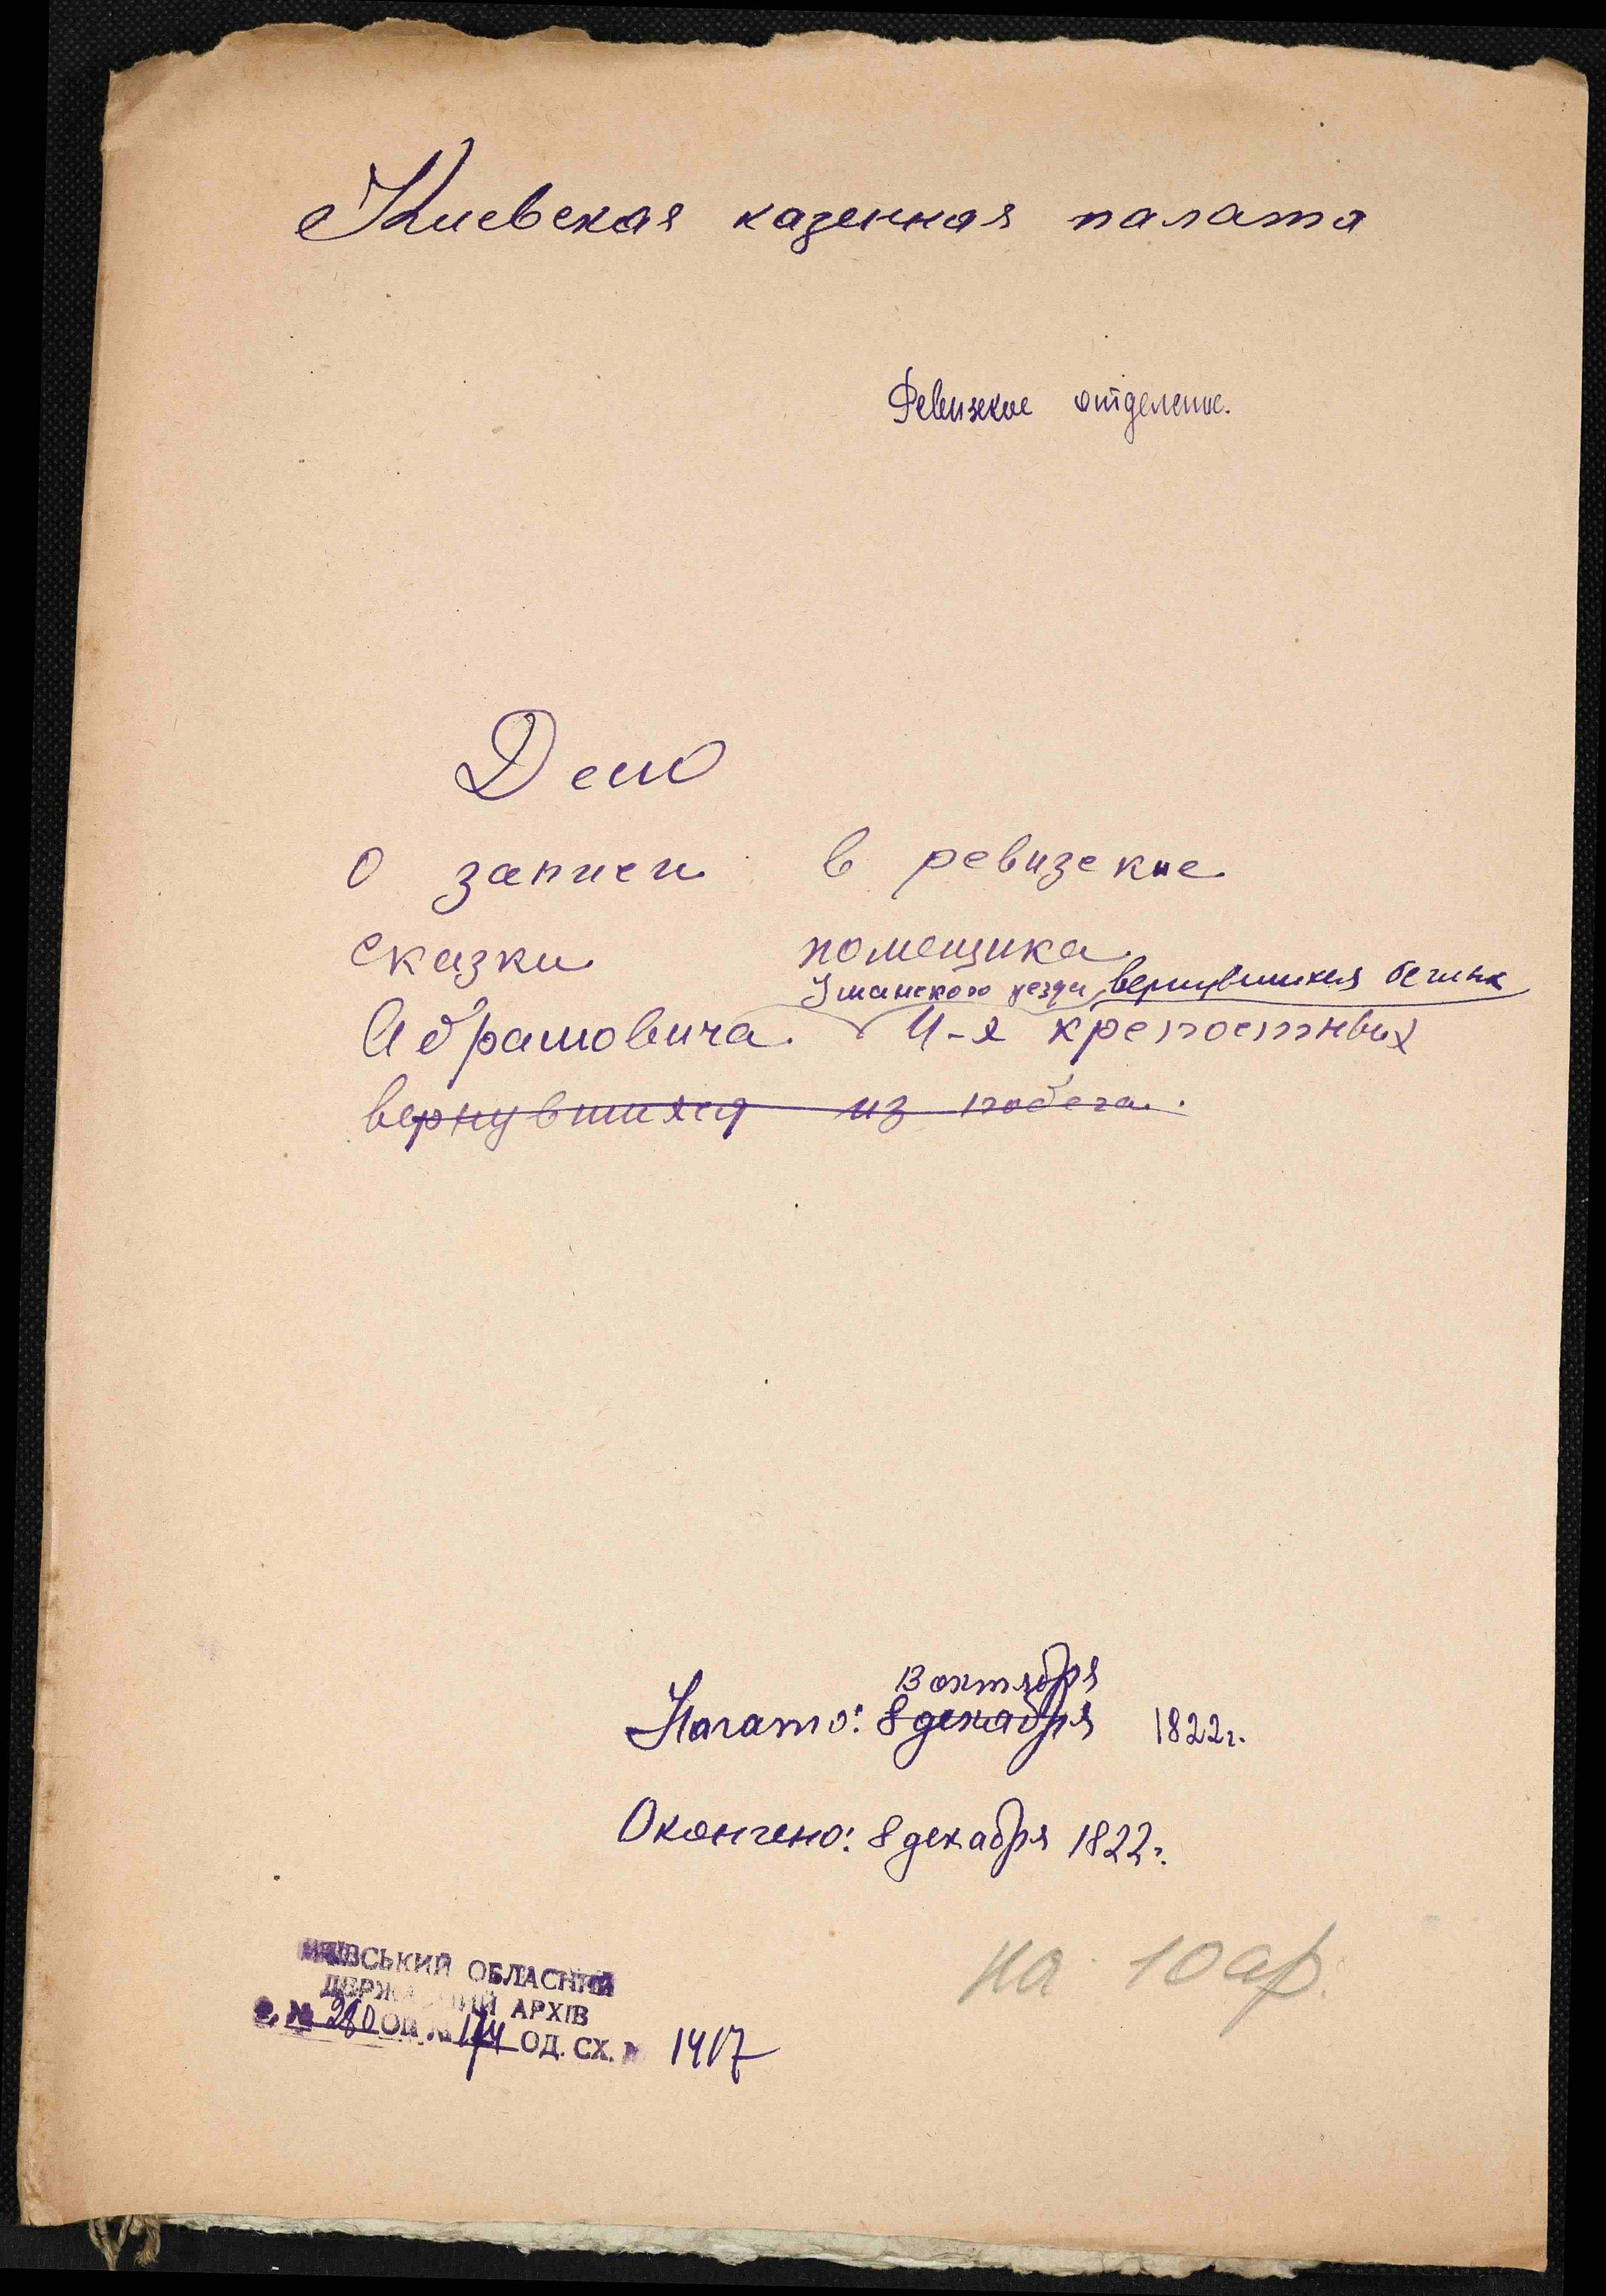 Киевская казенная палата
Ревизское отделение.
Дело
о записи в ревизские
сказки помещика
Уманского уезда вернувшихся беглых
Абрамовича 4-х крепостных
вернувшихся из побега.
13 октября
Начато: 8 декабря 1822г.
Окончено: 8 декабря 1822г.
КИЇВСЬКИЙ ОБЛАСНИЙ
ДЕРЖАВНИЙ АРХІВ
Ф. № 280 ОП № 174 ОД. СХ. № 1417
на 10 ар.